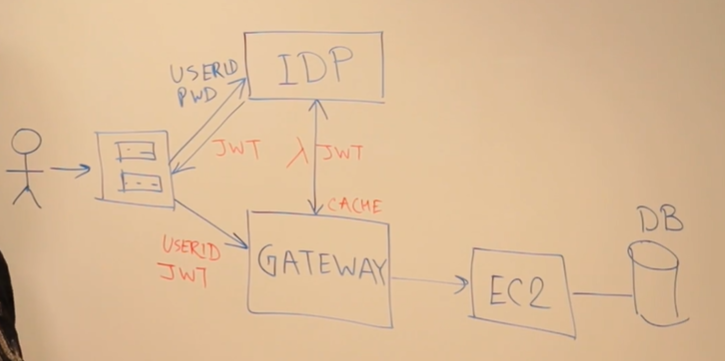 IDP
USERID
PWD
JWT
λ JWT
CACHE
USERID
JWT
GATEWAY
EC2
DB